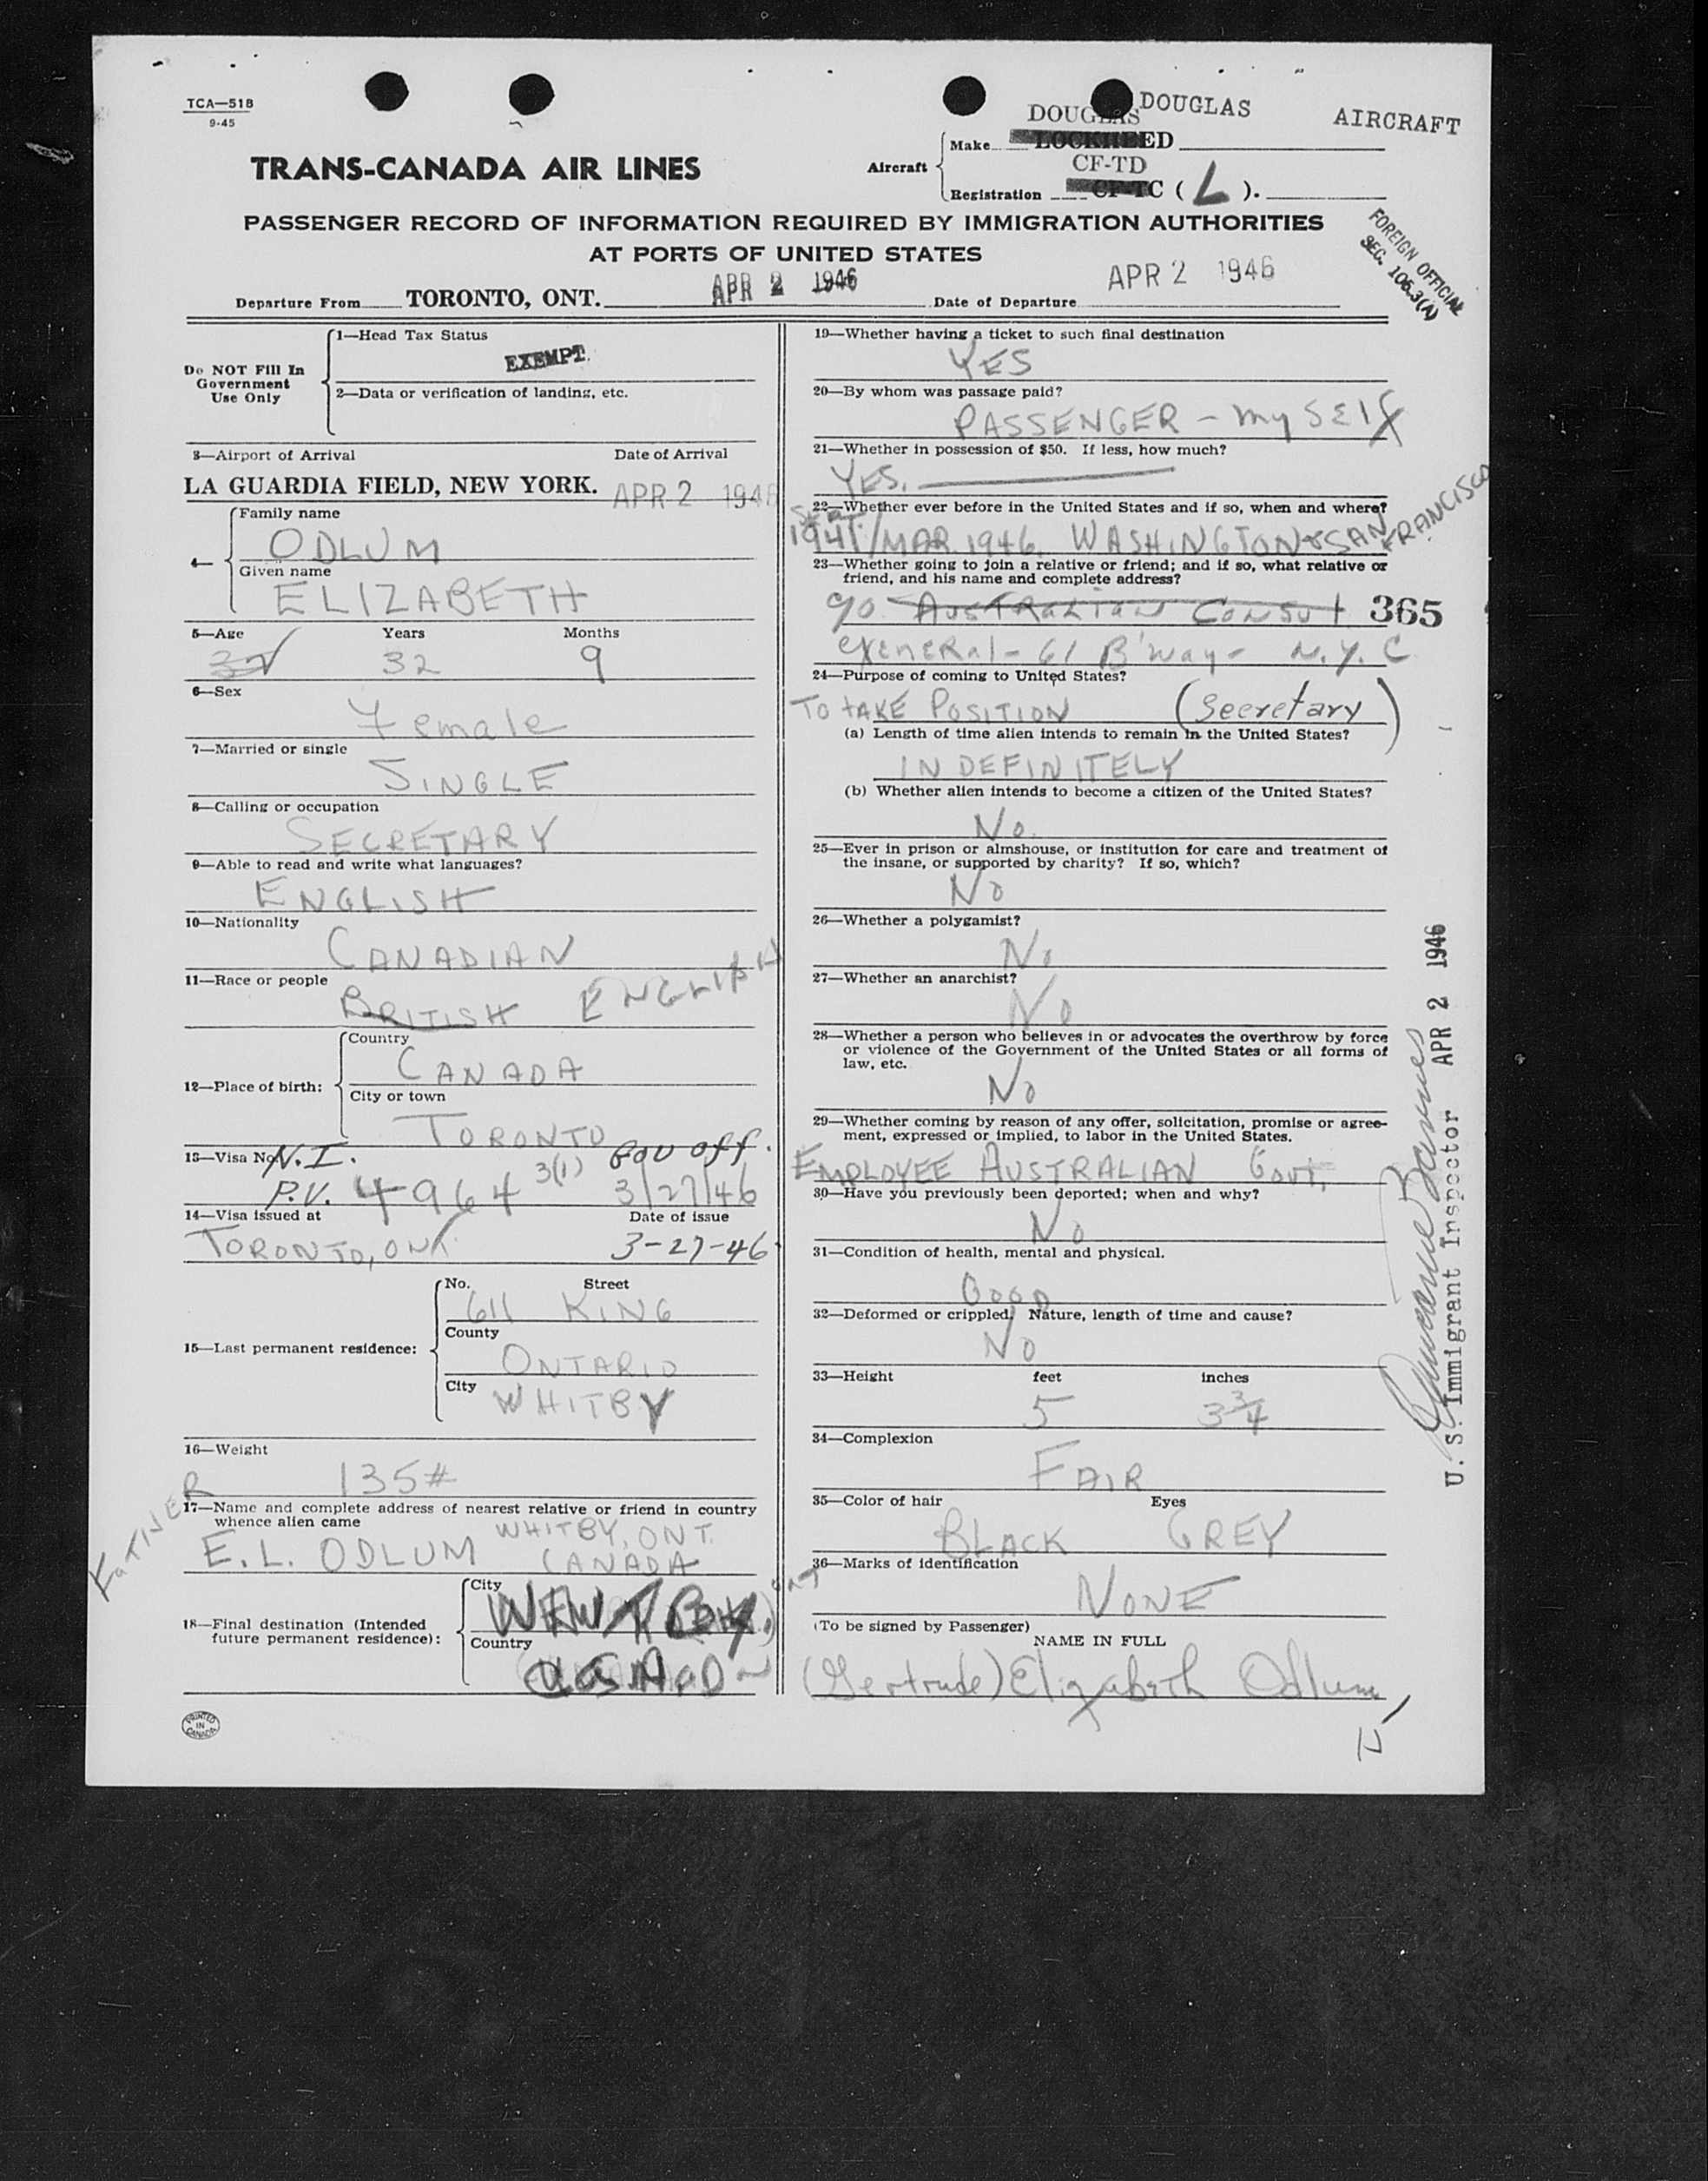 TCA—518
9-45
DOUGLAS DOUGLAS AIRCRAFT
Make LOCKHEED
TRANS-CANADA AIR LINES
Aircraft
CF-TD
Registration CF-TC ( L ).
PASSENGER RECORD OF INFORMATION REQUIRED BY IMMIGRATION AUTHORITIES
AT PORTS OF UNITED STATES
FOREIGN OFFICIAL
SEC. 106.3(A)
Departure From TORONTO, ONT. APR 2 1946 Date of Departure APR 2 1946
Do NOT Fill In
Government
Use Only
1—Head Tax Status
EXEMPT.
2—Data or verification of landing, etc.
3—Airport of Arrival Date of Arrival
LA GUARDIA FIELD, NEW YORK. APR 2 1946
4—
Family name
ODLUM
Given name
ELIZABETH
5—Age Years Months
32 32 9
6—Sex
Female
7—Married or single
SINGLE
8—Calling or occupation
SECRETARY
9—Able to read and write what languages?
ENGLISH
10—Nationality
CANADIAN
11—Race or people
BRITISH ENGLISH
12—Place of birth:
Country
CANADA
City or town
TORONTO
13—Visa No. N.I. Gov off.
P.V. 4964 3(1) 3/27/46
14—Visa issued at Date of issue
TORONTO, ONT. 3-27-46
15—Last permanent residence:
No. Street
611 KING
County
ONTARIO
City
WHITBY
16—Weight
135#
FATHER
17—Name and complete address of nearest relative or friend in country
whence alien came
WHITBY, ONT.
E. L. ODLUM CANADA
18—Final destination (Intended
future permanent residence):
City
ONT
Country
PRINTED
IN
CANADA
19—Whether having a ticket to such final destination
YES
20—By whom was passage paid?
PASSENGER - mySElf
21—Whether in possession of $50. If less, how much?
YES.
22—Whether ever before in the United States and if so, when and where?
1941/MAR. 1946. WASHINGTON & SAN FRANCISCO
23—Whether going to join a relative or friend; and if so, what relative or
friend, and his name and complete address?
c/o AustRalian Consul 365
general - 61 B'way - N.Y.C
24—Purpose of coming to United States?
TO tAKE POSITION (Secretary)
(a) Length of time alien intends to remain in the United States?
INDEFINITELY
(b) Whether alien intends to become a citizen of the United States?
No.
25—Ever in prison or almshouse, or institution for care and treatment of
the insane, or supported by charity? If so, which?
No
26—Whether a polygamist?
No
27—Whether an anarchist?
No
28—Whether a person who believes in or advocates the overthrow by force
or violence of the Government of the United States or all forms of
law, etc.
No
29—Whether coming by reason of any offer, solicitation, promise or agree-
ment, expressed or implied, to labor in the United States.
EMPLOYEE AUSTRALIAN GOVT.
30—Have you previously been deported; when and why?
No
31—Condition of health, mental and physical.
GOOD
32—Deformed or crippled. Nature, length of time and cause?
No
33—Height feet inches
5 3 3/4
34—Complexion
FAIR
35—Color of hair Eyes
BLACK GREY
36—Marks of identification
NONE
(To be signed by Passenger)
NAME IN FULL
(Gertrude) Elizabeth Odlum
U. S. Immigrant Inspector APR 2 1946